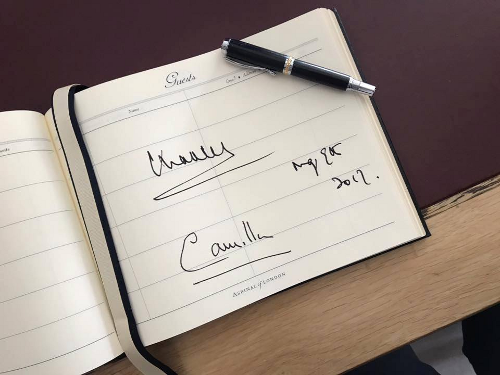 Guests
Charles
May 9th
2017.
Camilla
ASPINAL of LONDON